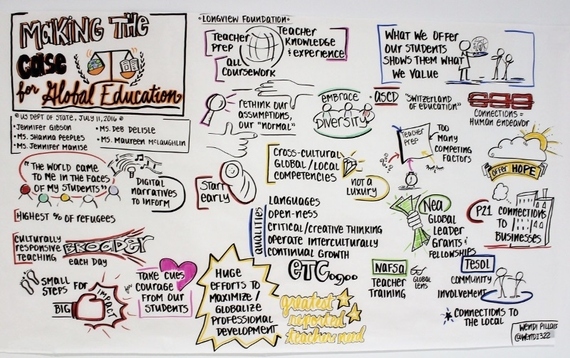 MAKING THE
CASE
for Global Education
@ US DEPT of STATE, JULY 11, 2016
• JENNIFER GIBSON
• MS. SHANNA PEEPLES
• MS. JENNIFER MANISE
• MS. DEB DELISLE
• MS. MAUREEN McLAUGHLIN
"THE WORLD CAME
TO ME IN THE FACES
OF MY STUDENTS"
DIGITAL
NARRATIVES
TO INFORM
HIGHEST % OF REFUGEES
CULTURALLY
RESPONSIVE
TEACHING
BROADER
EACH DAY
SMALL
STEPS FOR
BIG
IMPACT
TAKE CUES
COURAGE
FROM OUR
STUDENTS
LONGVIEW FOUNDATION
TEACHER
PREP
TEACHER
KNOWLEDGE
& EXPERIENCE
ALL
COURSEWORK
RETHINK OUR
ASSUMPTIONS,
OUR "NORMAL"
EMBRACE
DIVERSITY
START
EARLY
CROSS-CULTURAL
GLOBAL/LOCAL
COMPETENCIES
NOT A
LUXURY
QUALITIES
LANGUAGES
OPEN-NESS
CRITICAL/CREATIVE THINKING
OPERATE INTERCULTURALLY
CONTINUAL GROWTH
HUGE
EFFORTS TO
MAXIMIZE/
GLOBALIZE
PROFESSIONAL
DEVELOPMENT
greatest
reported
teacher need
WHAT WE OFFER
OUR STUDENTS
SHOWS THEM WHAT
WE VALUE
ASCD
"SWITZERLAND
OF EDUCATION"
CONNECTIONS =
HUMAN ENDEAVOR
TEACHER
PREP
TOO
MANY
COMPETING
FACTORS
OFFER HOPE
NEA
GLOBAL
LEADER
GRANTS &
FELLOWSHIPS
P21
CONNECTIONS
TO
BUSINESSES
NAFSA
TEACHER
TRAINING
GLOBAL
LENS
TESOL
COMMUNITY
INVOLVEMENT
CONNECTIONS TO
THE LOCAL
WENDI PILLARS
@WENDI322